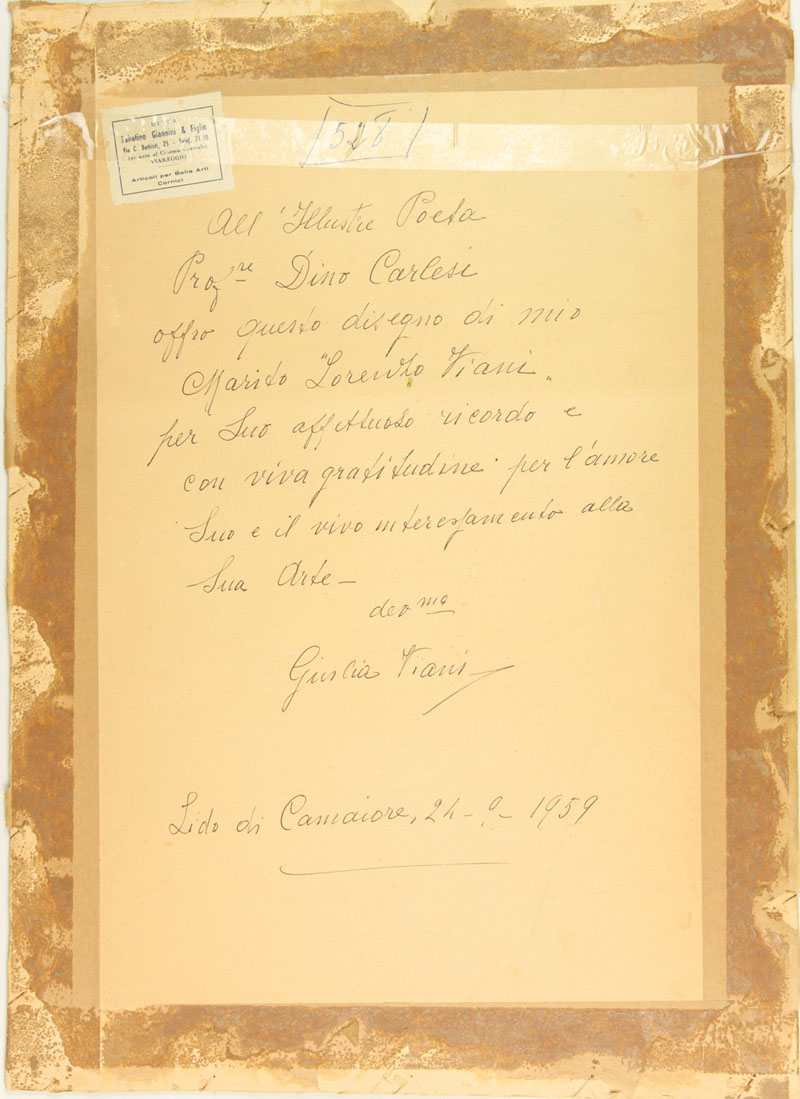 DITTA
Sabatino Giannini & Figlio
Via C. Battisti, 25 - Telef. 21.10
(accanto al Cinema Centrale)
VIAREGGIO
Articoli per Belle Arti
Cornici
528
All'Illustre Poeta
Prof.re Dino Carlesi
offro questo disegno di mio
Marito "Lorenzo Viani„
per Suo affettuoso ricordo e
con viva gratitudine per l'amore
Suo e il vivo interessamento alla
Sua Arte -
devma
Giulia Viani
Lido di Camaiore, 24 - 9 - 1959